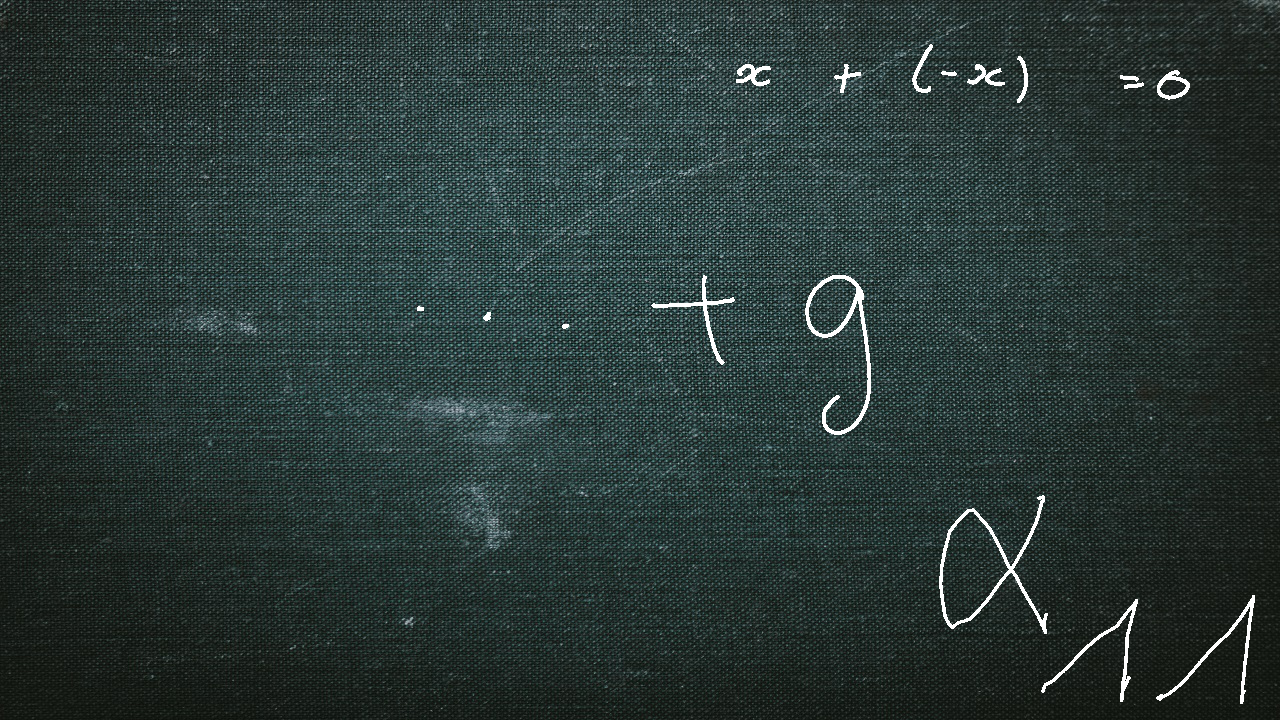 x + (-x) = 0
... + g
α₁₁